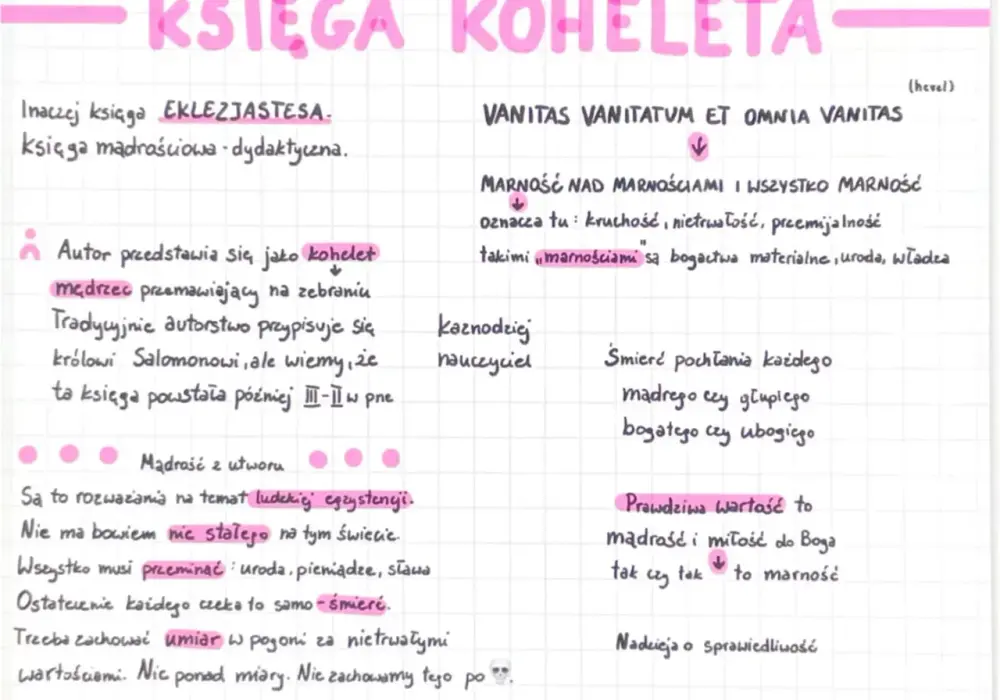 KSIĘGA KOHELETA
Inaczej księga EKLEZJASTESA.
księga mądrościowa - dydaktyczna.
(hevel)
VANITAS VANITATUM ET OMNIA VANITAS
MARNOŚĆ NAD MARNOŚCIAMI I WSZYSTKO MARNOŚĆ
oznacza tu: kruchość, nietrwałość, przemijalność
takimi „marnościami" są bogactwa materialne, uroda, władza
Autor przedstawia się jako kohelet
mędrzec przemawiający na zebraniu
Tradycyjnie autorstwo przypisuje się
królowi Salomonowi, ale wiemy, że
ta księga powstała później III-II w pne
kaznodziej
nauczyciel
Śmierć pochłania każdego
mądrego czy głupiego
bogatego czy ubogiego
Mądrość z utworu
Są to rozważania na temat ludzkiej egzystencji.
Nie ma bowiem nic stałego na tym świecie.
Wszystko musi przeminąć: uroda, pieniądze, sława
Ostatecznie każdego czeka to samo - śmierć.
Trzeba zachować umiar w pogoni za nietrwałymi
wartościami. Nic ponad miarę. Nie zachowamy tego po 💀.
Prawdziwa wartość to
mądrość i miłość do Boga
tak czy tak to marność
Nadzieja o sprawiedliwość